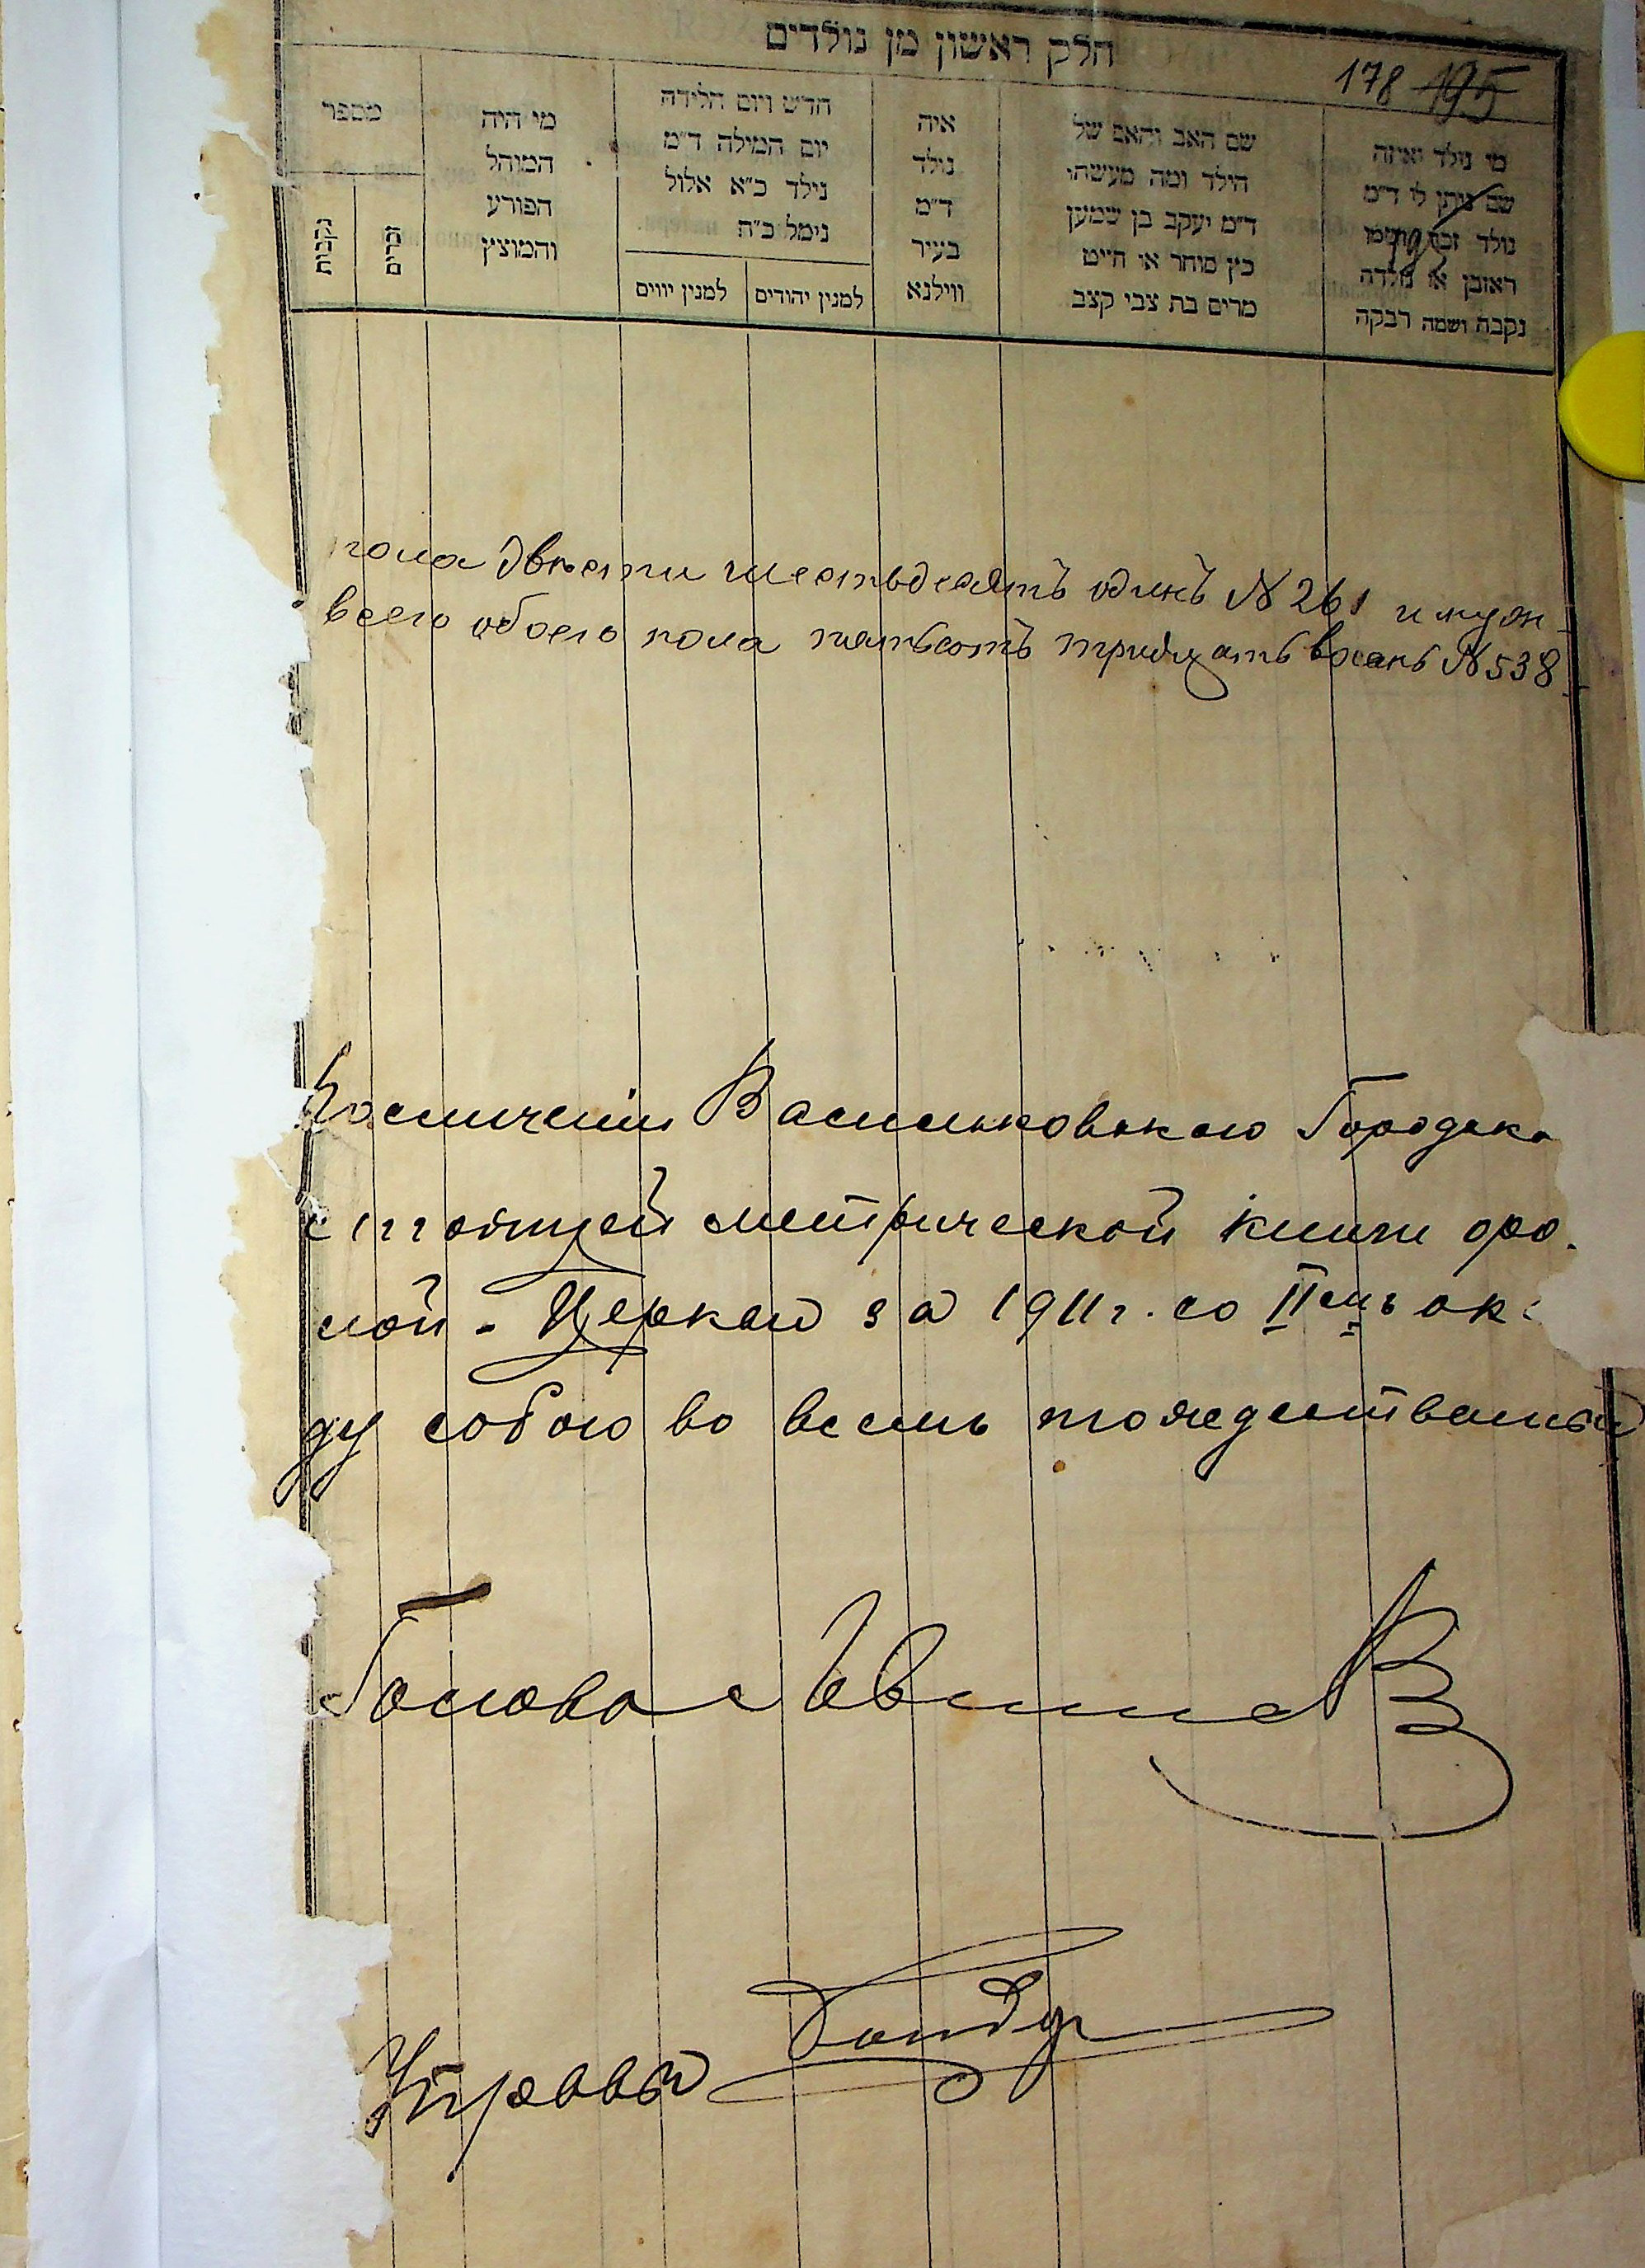 חלק ראשון מן נולדים
178 195
מי נולד ואיזה
שם ניתן לו ד״מ
נולד זכר ושמו
ראובן או נולדה
נקבה ושמה רבקה
שם האב והאם של
הילד ומה מעשהו
ד״מ יעקב בן שמעון
כץ סוחר או חייט
מרים בת צבי קצב
איה
נולד
ד״מ
בעיר
ווילנא
חדש ויום הלידה
יום המילה ד״מ
נילד כ״א אלול
נימל כ״ח
למנין יהודים
למנין יווים
מי היה
המוהל
הפורע
והמוצץ
מספר
זכרים
נקבות
пола двѣсти шестьдесятъ одинъ №261 и муж-
всего обоего пола пятьсотъ тридцать восемь №538
Васильковскаго Городска
стоящей метрической книги о ро-
лой-Церкви за 1911 г. со II
ду собою во всемъ тождественны
Голова